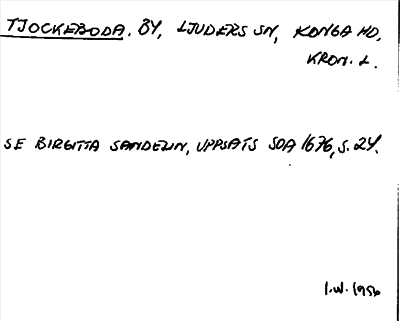 TJOCKEBODA. BY, LJUDERS SN, KONGA HD,
KRON. L.
SE BIRGITTA SANDELIN, UPPSATS SOA 1676, S. 24.
I.W. 1956